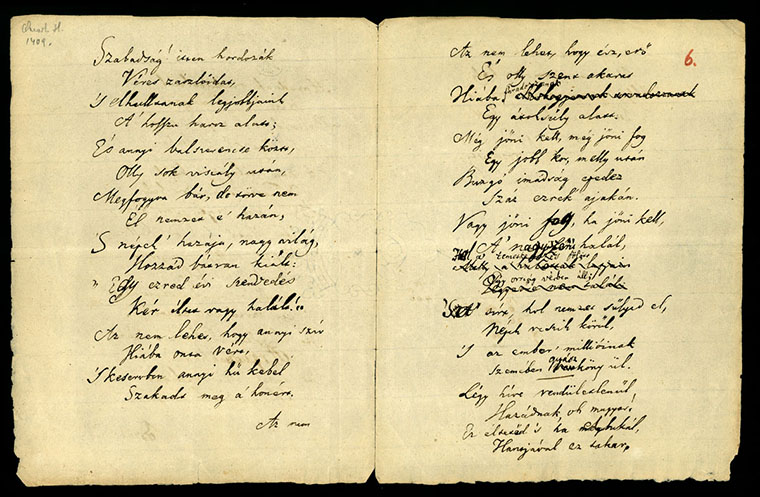 1409.
Szabadság' itten hordozák
Véres zászlóidat,
'S elhulltanak legjobbjaink
A' hosszu harcz alatt;
És annyi balszerencse közt,
Olly sok viszály után,
Megfogyva bár, de törve nem
Él nemzet e' hazán,
'S népek' hazája, nagy világ,
Hozzád bátran kiált:
"Egy ezred évi szenvedés
Kér éltet vagy halált!"
Az nem lehet, hogy annyi szív
Hiába onta vért,
'S keservben annyi hű kebel
Szakadt meg a' honért.
Az nem
6.
Az nem lehet, hogy ész, erő
És olly szent akarat
Hiába
Egy átoksúly alatt.
Még jőni kell, még jőni fog
Egy jobb kor, melly után
Buzgó imadság epedez
Száz ezrek' ajakán.
Vagy jőni fog, ha jőni kell,
A' nagyszerű halál,
Hol a' temetkezés fölött
Egy ország vérben áll.
'S a' sírt, hol nemzet sűlyed el,
Népek veszik körűl,
'S az ember' millióinak
Szemében gyász köny űl.
Légy híve rendületlenűl
Hazádnak oh magyar,
Ez éltetőd 's ha elbukál,
Hantjával ez takar.